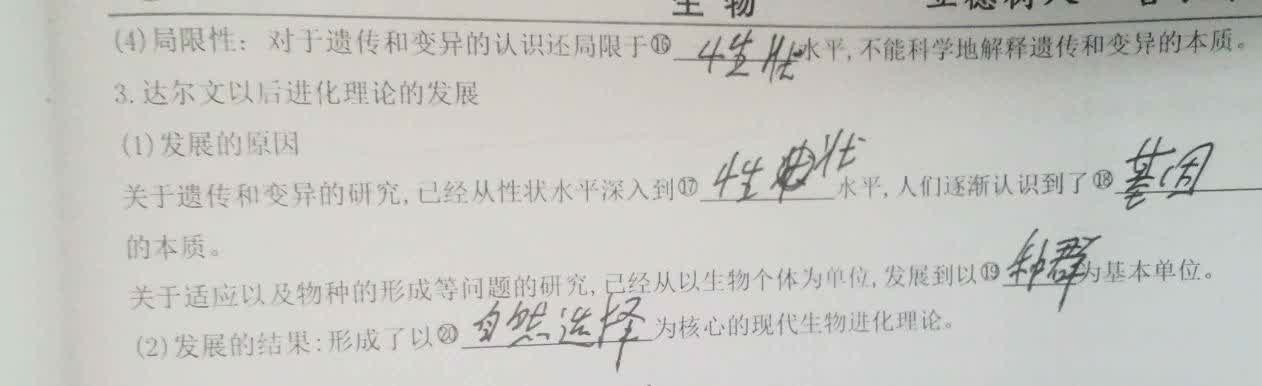 生物
(4)局限性：对于遗传和变异的认识还局限于⑯性状水平,不能科学地解释遗传和变异的本质。
3.达尔文以后进化理论的发展
(1)发展的原因
关于遗传和变异的研究,已经从性状水平深入到⑰性状水平,人们逐渐认识到了⑱基因
的本质。
关于适应以及物种的形成等问题的研究,已经从以生物个体为单位,发展到以⑲种群为基本单位。
(2)发展的结果:形成了以⑳自然选择为核心的现代生物进化理论。